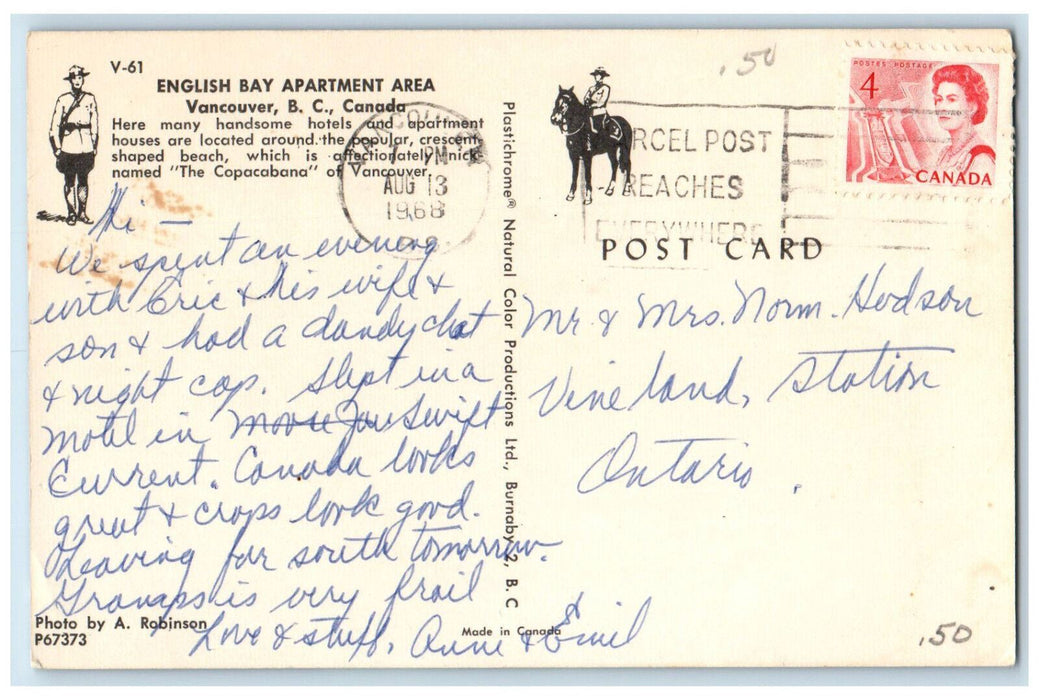 V-61
ENGLISH BAY APARTMENT AREA
Vancouver, B. C., Canada
Here many handsome hotels and apartment
houses are located around the popular, crescent
shaped beach, which is affectionately nick-
named "The Copacabana" of Vancouver.
Hi —
We spent an evening
with Eric & his wife &
son & had a dandy chat
& night cap. Slept in a
motel in Moose Jaw Swift
Current. Canada looks
great & crops look good.
Leaving for south tomorrow.
Gramps is very frail
Love & stuff, Anne & Emil
Photo by A. Robinson
P67373
Plastichrome® Natural Color Productions Ltd., Burnaby 2, B. C
Made in Canada
.50
VANCOUVER
PM
AUG 13
1968
PARCEL POST
REACHES
EVERYWHERE
POSTES POSTAGE
4
CANADA
POST CARD
Mr. & Mrs. Norm. Hodson
Vineland, Station
Ontario.
.50